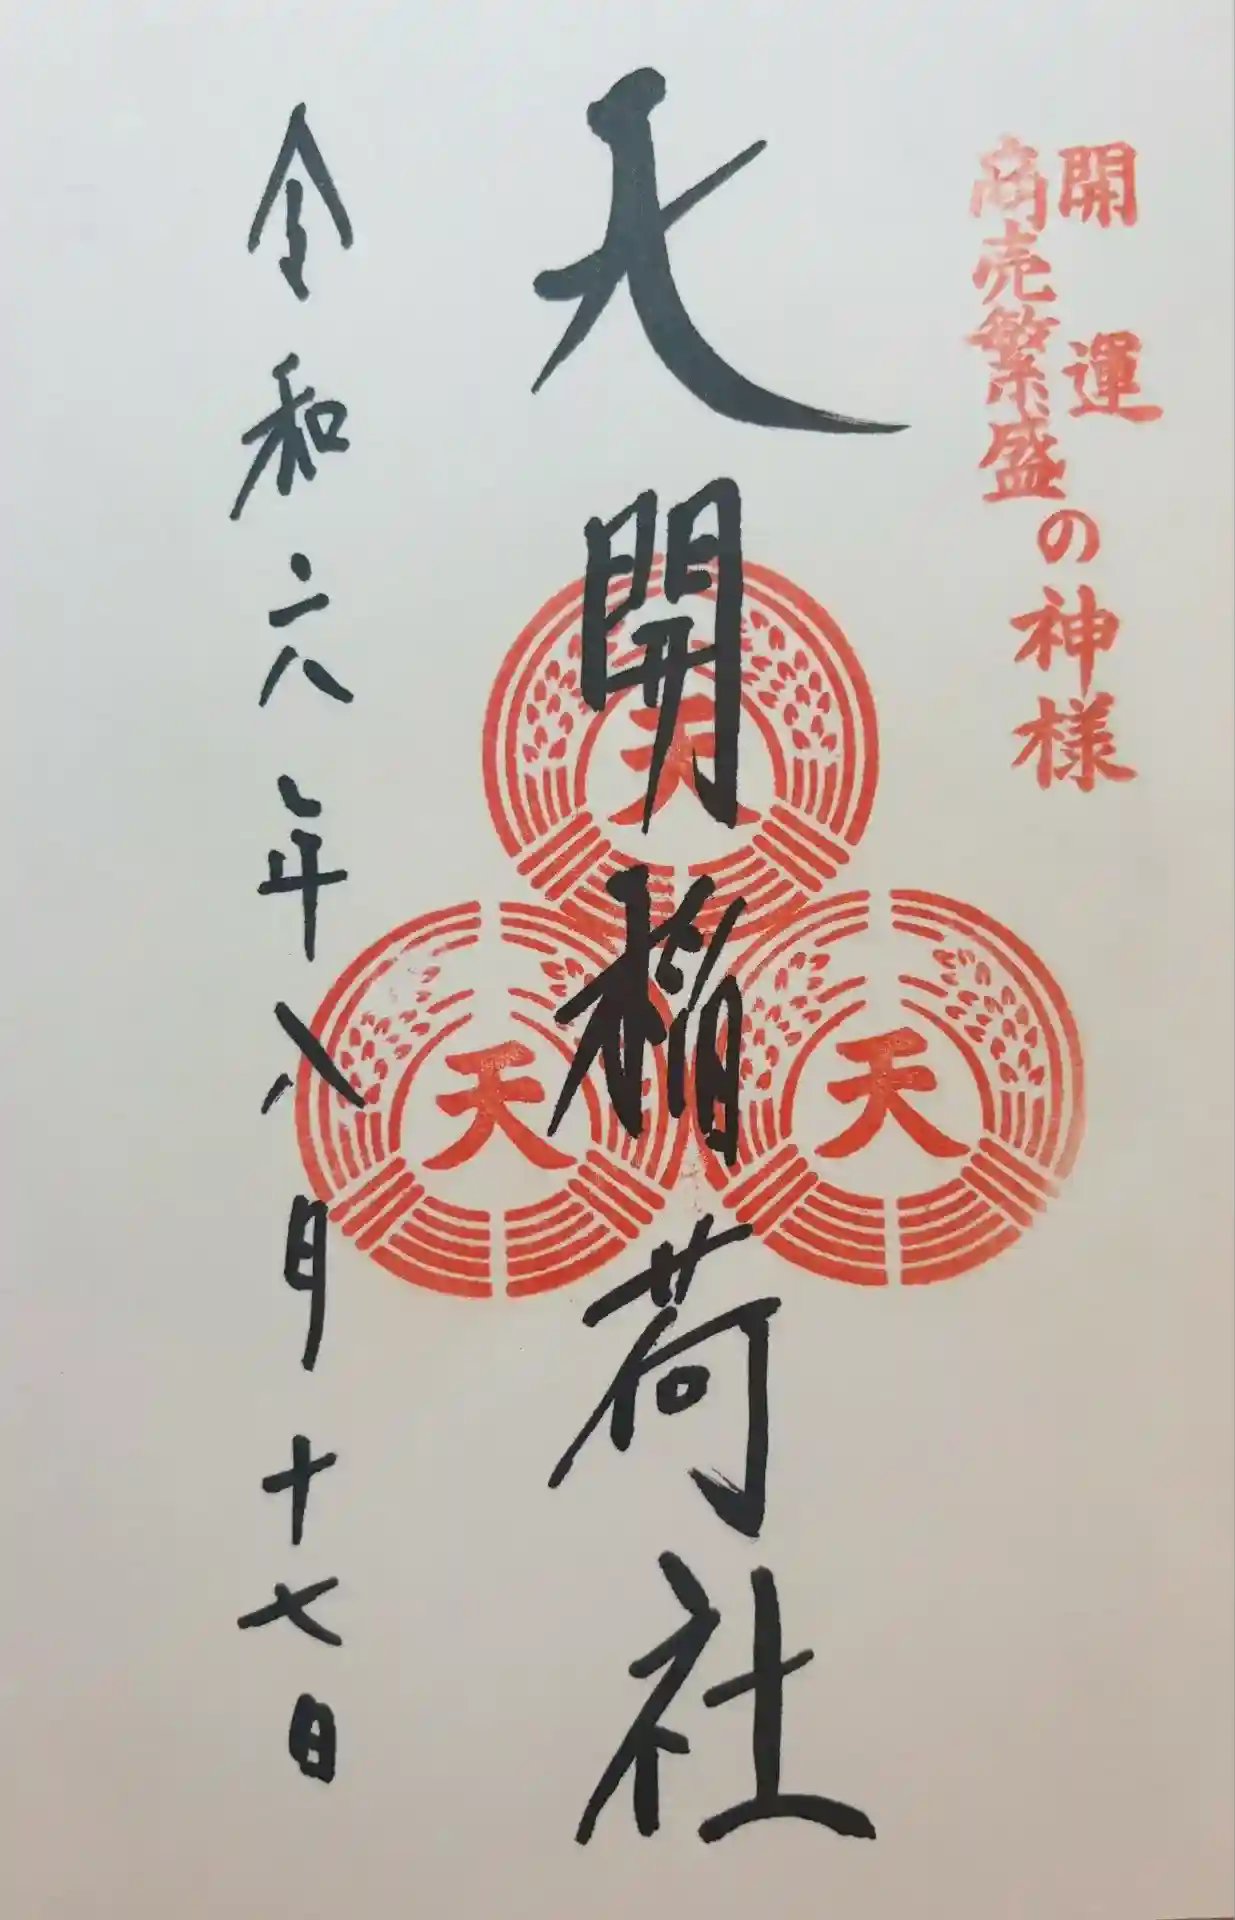 開運
商売繁盛
の神様
大開稲荷社
天
天
天
令和六年八月十七日